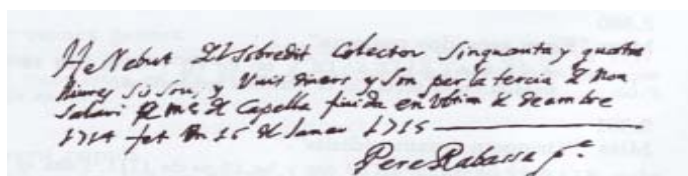 He Rebut del sobredit Colector Sinquanta y quatre
lliures sis sous, y Vuit diners y son per la tercia del Mon
Salari de Me de Capella finida en Ultim de Dembre
1714 fet en 15 de Janer 1715
Pere Rabassa